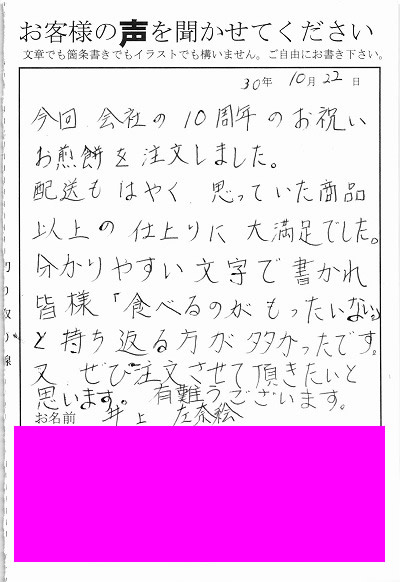 お客様の声を聞かせてください
文章でも箇条書きでもイラストでも構いません。ご自由にお書き下さい。
30年 10月 22日
今回 会社の 10周年 のお祝い
お煎餅を注文しました。
配送も はやく 思っていた商品
以上の 仕上りに 大満足でした。
分かりやすい文字で書かれ
皆様「食べるのが もったいない」
と持ち返る方が多かったです。
又 ぜひ注文させて頂きたいと
思います。 有難うございます。
お名前 井上 左奈絵
切り取り線